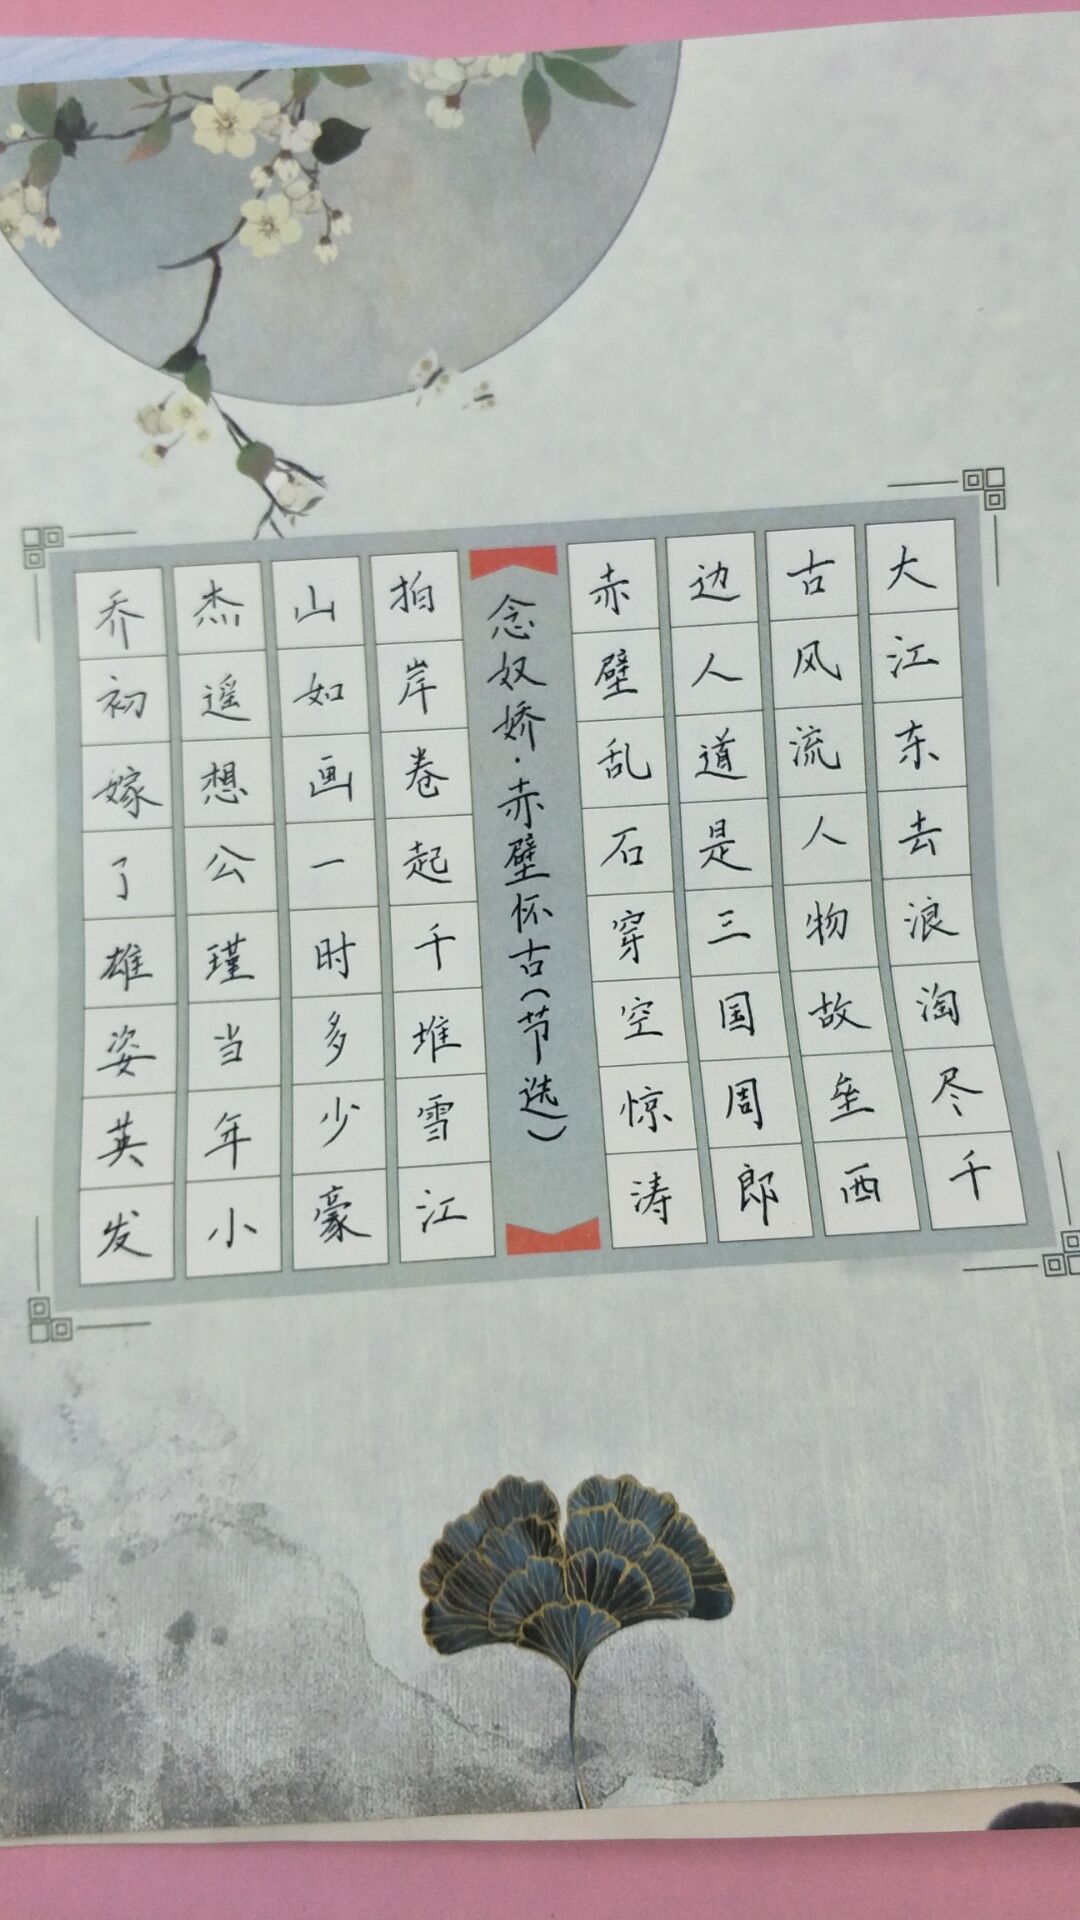 大江东去浪淘尽千
古风流人物故垒西
边人道是三国周郎
赤壁乱石穿空惊涛
念奴娇·赤壁怀古(节选)
拍岸卷起千堆雪江
山如画一时多少豪
杰遥想公瑾当年小
乔初嫁了雄姿英发